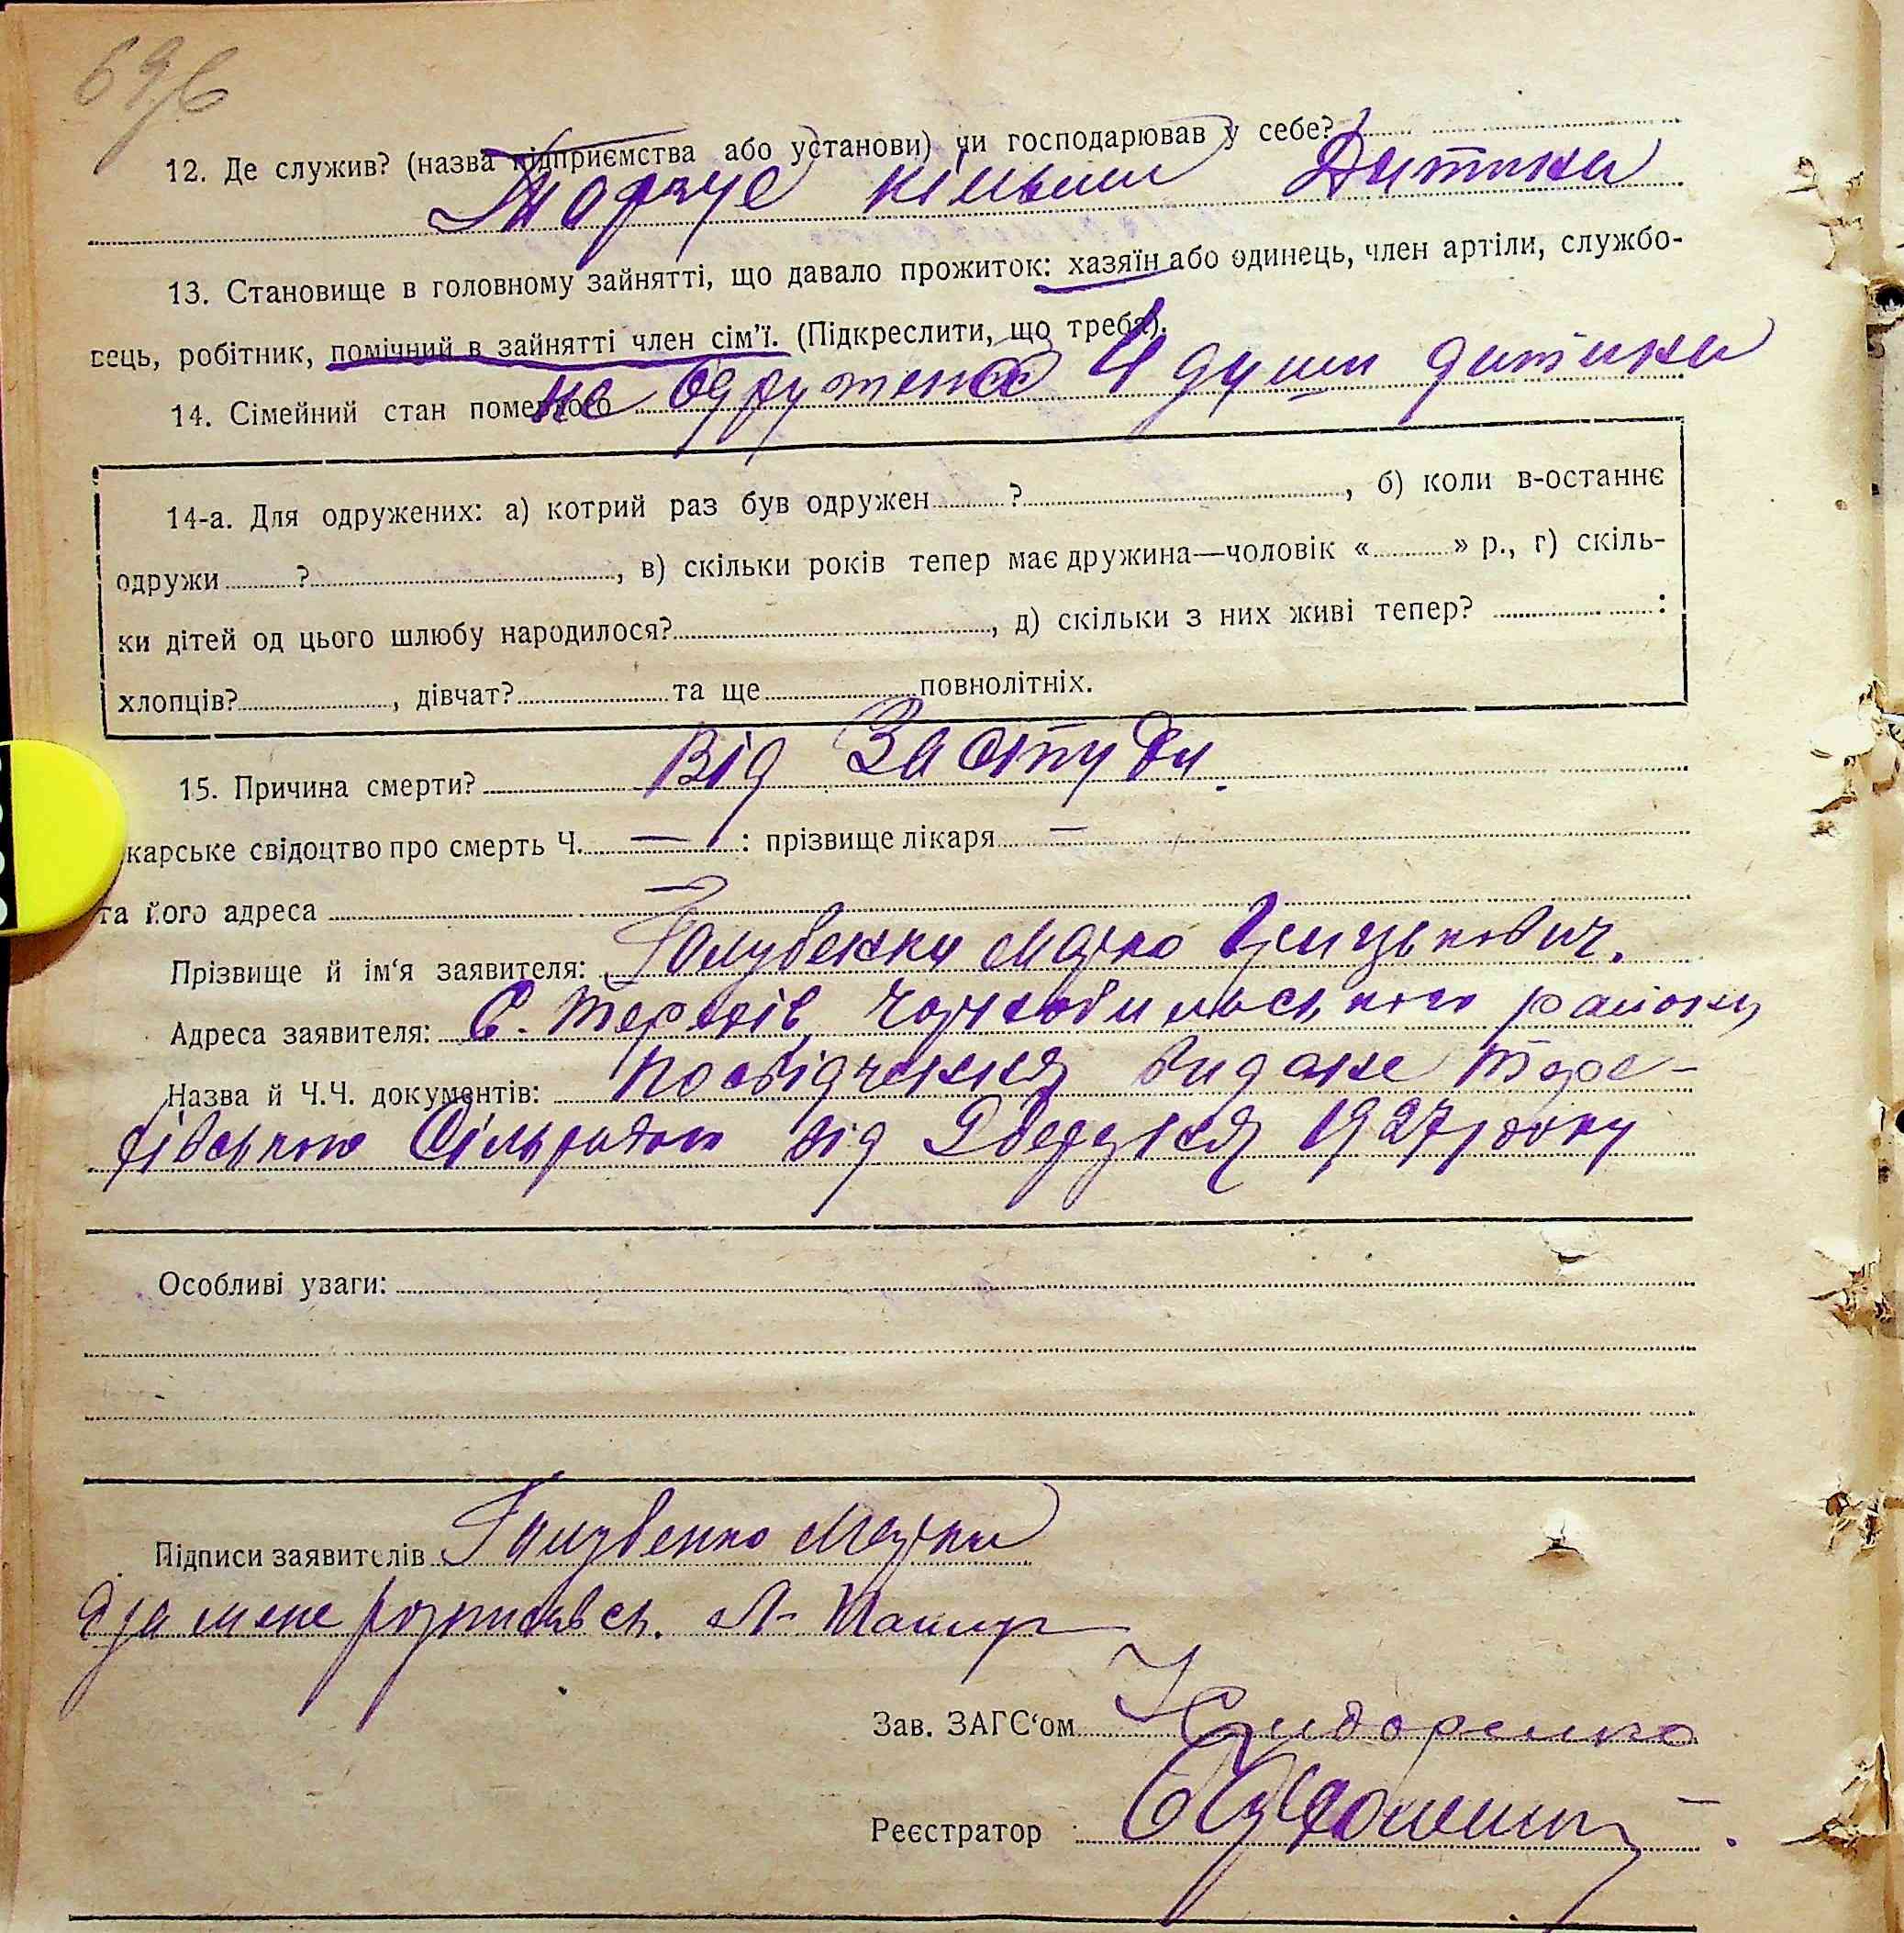 12. Де служив? (назва підприємства або установи) чи господарював у себе?
13. Становище в головному зайнятті, що давало прожиток: хазяїн або одинець, член артіли, службо-
вець, робітник, помічний в зайнятті член сім'ї. (Підкреслити, що треба).
14. Сімейний стан померлого не одружена 4 души дитини
14-а. Для одружених: а) котрий раз був одружен ? , б) коли в-останнє
одружи ? , в) скільки років тепер має дружина—чоловік « » р., г) скіль-
ки дітей од цього шлюбу народилося? , д) скільки з них живі тепер? :
хлопців? , дівчат? та ще повнолітніх.
15. Причина смерти? Від Застуди.
карське свідоцтво про смерть Ч. — : прізвище лікаря —
та його адреса —
Прізвище й ім'я заявителя: Голубенки Марко Грицькович.
Адреса заявителя: С. Терехів, Чорнобильського району
Назва й Ч.Ч. документів: Посвідчення видане Тере-
хівською Сільрадою від Рбердня 1927 року
Особливі уваги:
Підписи заявителів Голубенко Марки
а за мене розписався. Л.
Зав. ЗАГС'ом
Реєстратор